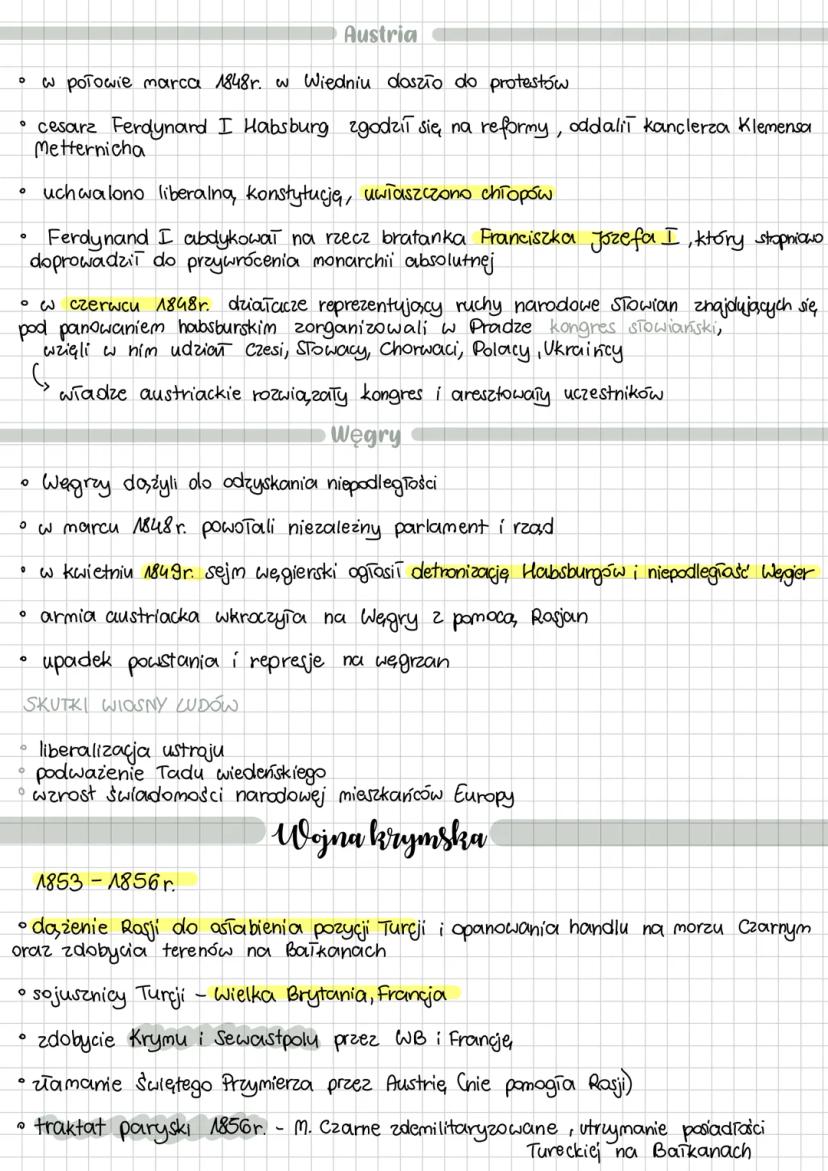 Austria
• w połowie marca 1848r. w Wiedniu doszło do protestów
• cesarz Ferdynard I Habsburg zgodził się na reformy, oddalił kanclerza Klemensa
Metternicha
• uchwalono liberalną konstytucję, uwłaszczono chłopów
• Ferdynand I abdykował na rzecz bratanka Franciszka Józefa I, który stopniowo
doprowadził do przywrócenia monarchii absolutnej
• w czerwcu 1848r. działacze reprezentujący ruchy narodowe Słowian znajdujących się
pod panowaniem habsburskim zorganizowali w Pradze kongres słowiański,
wzięli w nim udział Czesi, Słowacy, Chorwaci, Polacy, Ukraińcy
↳ władze austriackie rozwiązały kongres i aresztowały uczestników
Węgry
• Węgrzy dążyli do odzyskania niepodległości
• w marcu 1848r. powołali niezależny parlament i rząd
• w kwietniu 1849r. sejm węgierski ogłosił detronizację Habsburgów i niepodległość Węgier
• armia austriacka wkroczyła na Węgry z pomocą Rosjan
• upadek powstania i represje na węgrzan
SKUTKI WIOSNY LUDÓW
• liberalizacja ustroju
• podważenie ładu wiedeńskiego
• wzrost świadomości narodowej mieszkańców Europy
Wojna krymska
1853 - 1856r.
• dążenie Rosji do osłabienia pozycji Turcji i opanowania handlu na morzu Czarnym
oraz zdobycia terenów na Bałkanach
• sojusznicy Turcji - Wielka Brytania, Francja
• zdobycie Krymu i Sewastpolu przez WB i Francję
• złamanie Świętego Przymierza przez Austrię (nie pomogła Rosji)
• traktat paryski 1856r. - M. Czarne zdemilitaryzowane, utrzymanie posiadłości
Tureckiej na Bałkanach